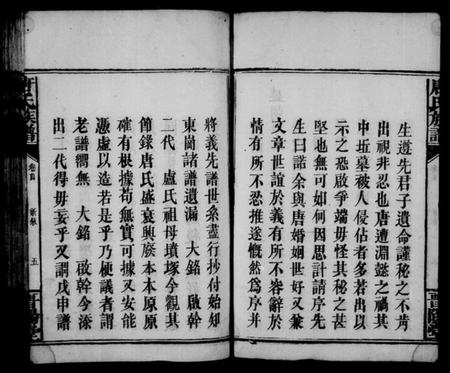 生遵先君子遺命謹秘之不肯
出視非忍也唐遭淵懿之禍其
中坵墓被人侵佔者多若出以
示之恐啟爭端毋怪其秘之甚
堅也無可如何因思計請序先
生曰諾余與唐婚姻世好又兼
文章世誼於義有所不容辭於
情有所不忍推遂慨然為序并
將義先譜世系盡行抄付始知
東崗諸譜遺漏 大銘 啟幹
二代 盧氏祖母墳塚今觀其
節錄唐氏盛衰興廢本本原原
確有根據苟無實可據又安能
憑虛以造若是乎乃梗議者謂
老譜謂無 大銘 啟幹今添
出二代得毋妄乎又謂戊申譜
唐氏族譜
卷首
五